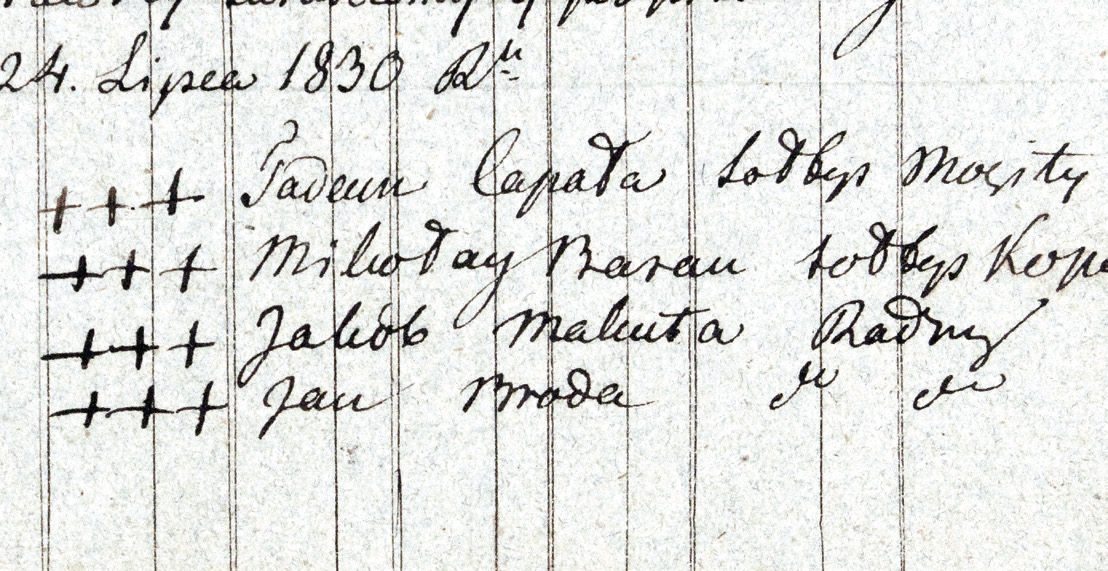 24. Lipca 1830 Ru
+++ Tadeusz Capała sołtys Mosty
+++ Mikołay Baran sołtys
+++ Jakób Makuta Radny
+++ Jan Broda